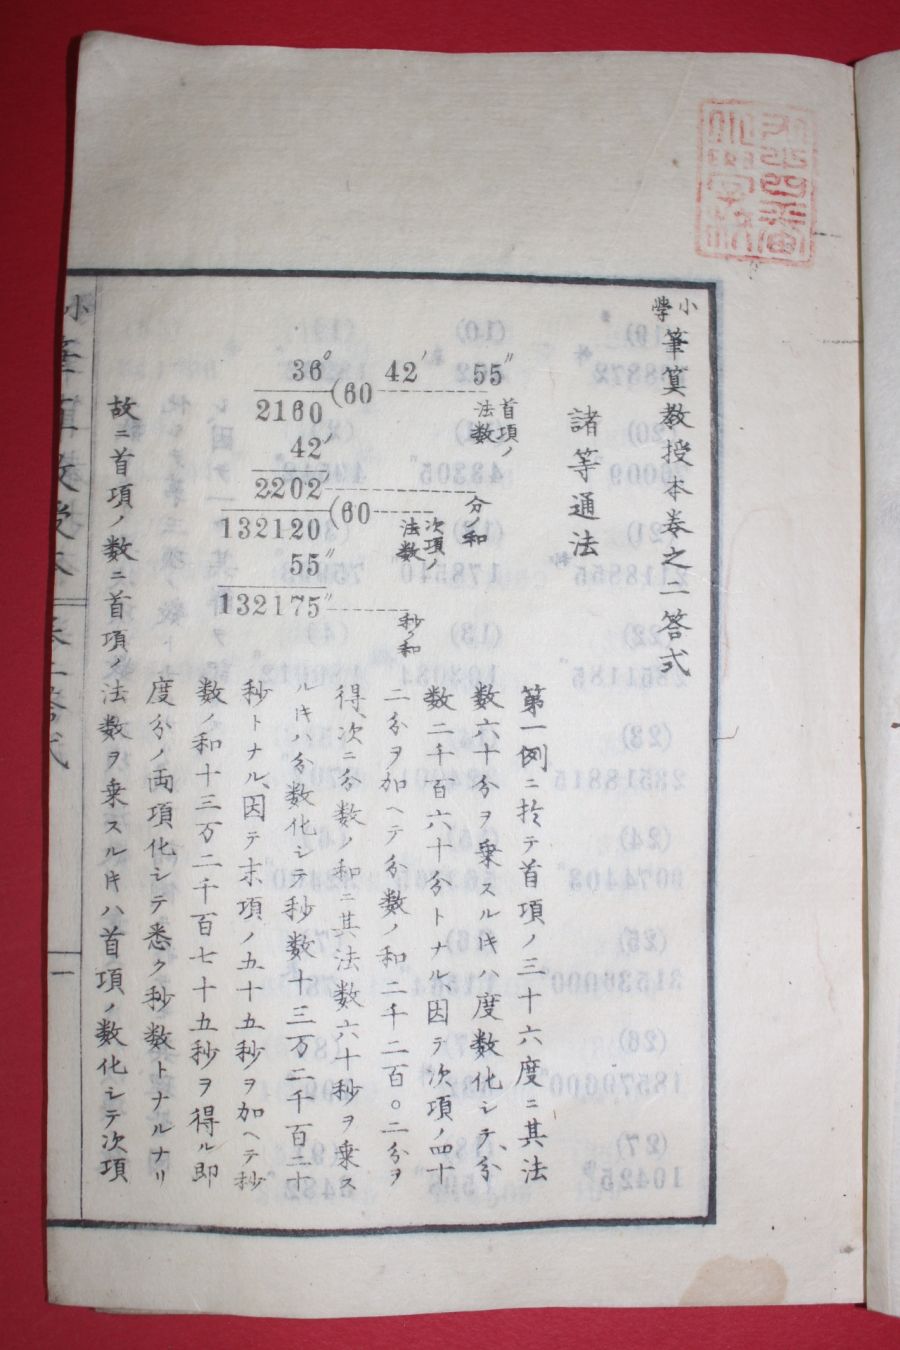 小學筆算教授本巻之二答式
諸等通法
36° 42′ 55″
(60
首項ノ法数
2160
42′
2202
分ノ和
(60
次項ノ法数
132120
55″
132175″
秒ノ和
第一例ニ於テ首項ノ三十六度ニ其法
数六十分ヲ乗スル𪜈ハ度数化シテ、分
数二千百六十分トナル、因テ次項ノ四十
二分ヲ加ヘテ分数ノ和二千二百〇二分ヲ
得、次ニ分数ノ和ニ其法数六十秒ヲ乗ス
ル𪜈ハ分数化シテ秒数十三万二千百二十
秒トナル、因テ末項ノ五十五秒ヲ加ヘテ秒
数ノ和十三万二千百七十五秒ヲ得ル即
度分ノ両項化シテ悉ク秒数トナルナリ
故ニ首項ノ数ニ首項ノ法数ヲ乗スル𪜈ハ首項ノ数化シテ次項
一